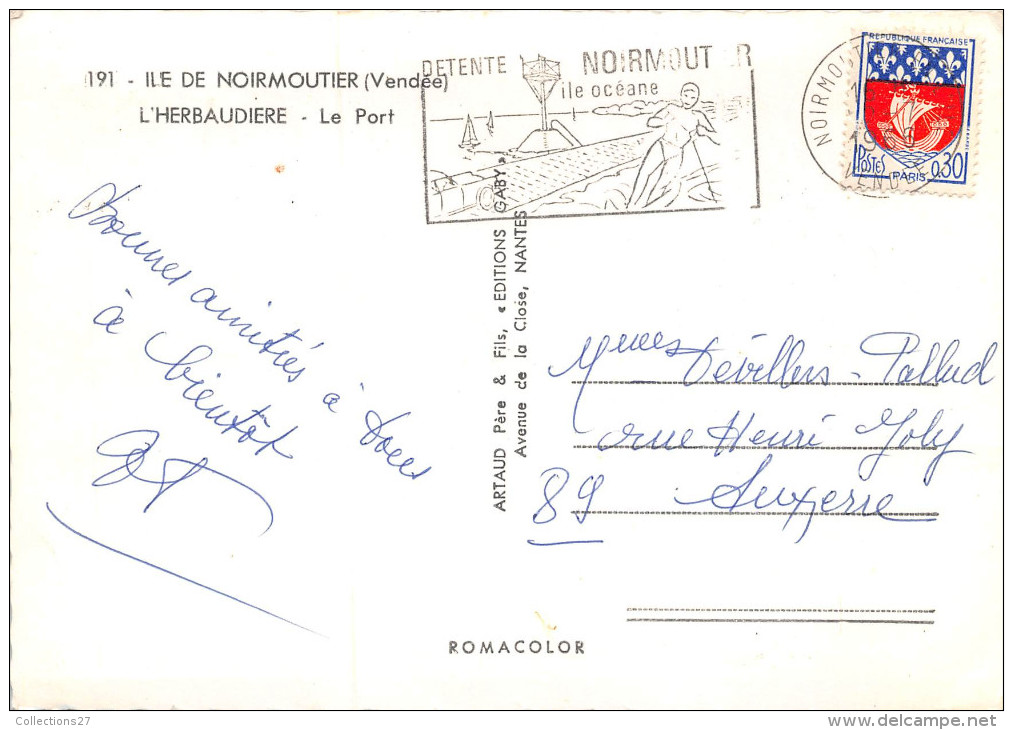 191 - ILE DE NOIRMOUTIER (Vendée)
L'HERBAUDIERE - Le Port
DETENTE NOIRMOUT ER
île océane
REPUBLIQUE FRANÇAISE
POSTES PARIS 0,30
NOIRMOUT
19
VENDEE
Bonnes amitiés à tous
à bientôt
ARTAUD Père & Fils, « EDITIONS GABY »
Avenue de la Close, NANTES
Mmes Dévillers - Pallud
rue Henri Joly
89 Auxerre
ROMACOLOR
Collections27
delcampe.net